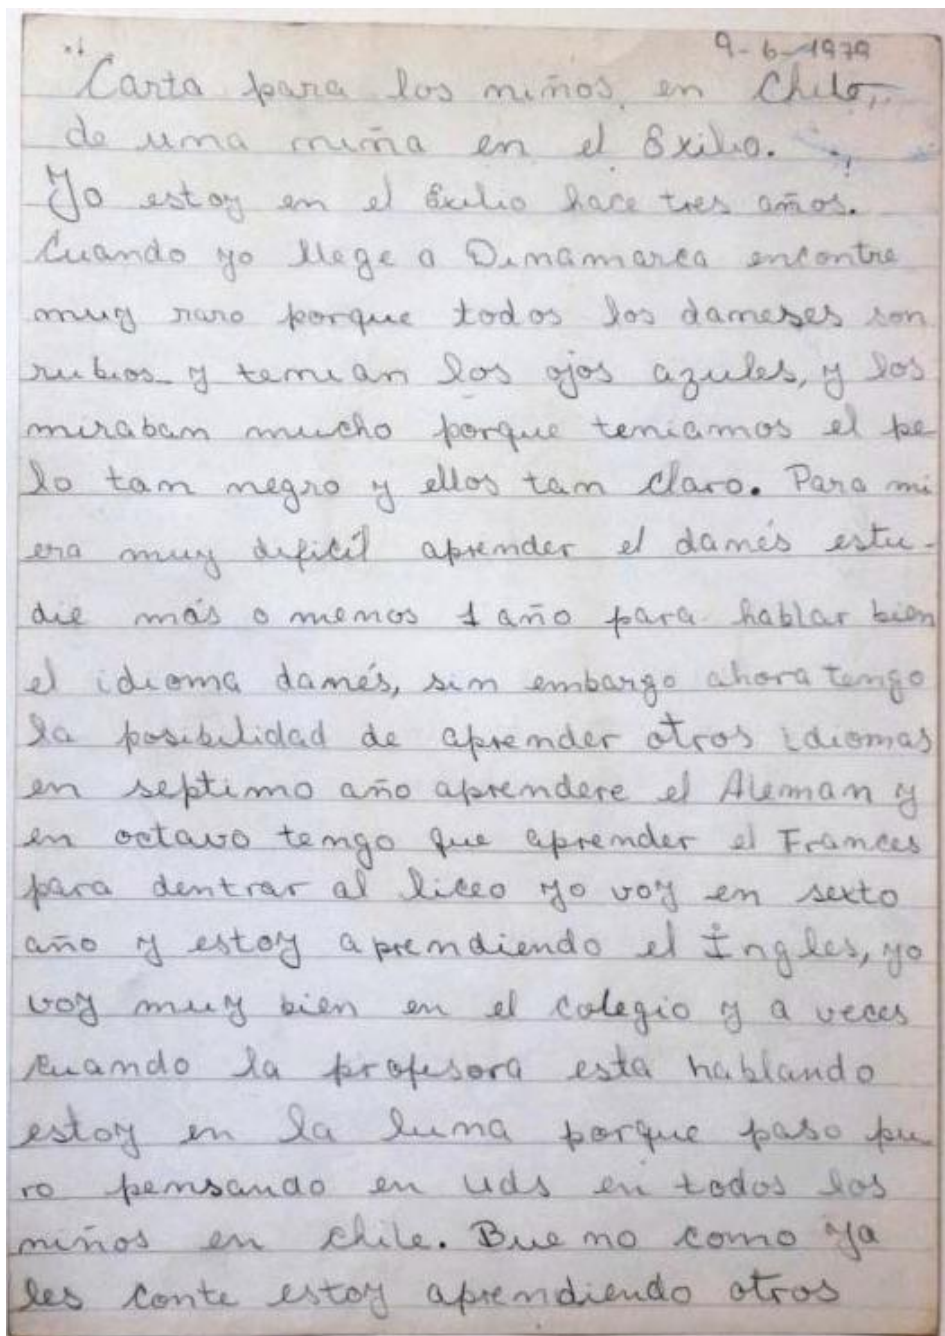 9-6-1979
Carta para los niños, en Chile,
de una niña en el Exilio.
Yo estoy en el Exilio hace tres años.
Cuando yo llege a Dinamarca encontre
muy raro porque todos los daneses son
rubios y tenian los ojos azules, y los
miraban mucho porque teniamos el pe-
lo tan negro y ellos tan claro. Para mi
era muy dificíl aprender el danés estu-
die más o menos 1 año para hablar bien
el idioma danés, sin embargo ahora tengo
la posibilidad de aprender otros idiomas
en septimo año aprendere el Aleman y
en octavo tengo que aprender el Frances
para dentrar al liceo yo voy en sexto
año y estoy aprendiendo el Ingles, yo
voy muy bien en el colegio y a veces
cuando la profesora esta hablando
estoy en la luna porque paso pu
ro pensando en uds en todos los
niños en chile. Bueno como ya
les conte estoy aprendiendo otros